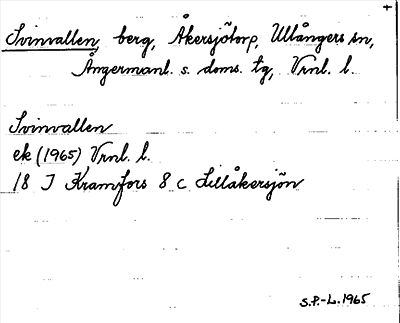 +
Svinvallen, berg, Åkersjötorp, Ullångers sn,
Ångermanl. s. doms. tg, Vrnl. l.
Svinvallen
ek (1965) Vrnl. l.
18 J Kramfors 8 c Lillåkersjön
S.P.-L. 1965